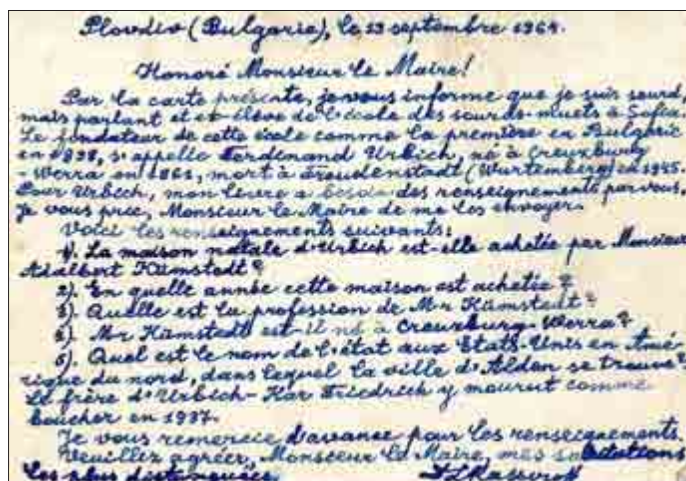 Plovdiv (Bulgarie), le 19 septembre 1964.
Honoré Monsieur le Maire!
Par la carte présente, je vous informe que je suis sourd,
mais parlant et ex-élève de l'école des sourds-muets à Sofia.
Le fondateur de cette école comme la première en Bulgarie
en 1898, s'appelle Ferdinand Urbich, né à Creuxburg
-Werra en 1861, mort à Freudenstadt (Wurtemberg) en 1945.
Pour Urbich, mon livre a besoin des renseignements par vous.
Je vous prie, Monsieur le Maire de me les envoyer.
Voici les renseignements suivants:
1). La maison natale d'Urbich est-elle achetée par Monsieur
Adalbert Kümstedt?
2). En quelle année cette maison est achetée?
3). Quelle est la profession de Mr Kümstedt?
4). Mr Kümstedt est-il né à Creuxburg-Werra?
5). Quel est le nom de l'état aux Etats-Unis en Amé-
rique du nord, dans lequel la ville d'Alden se trouve?
Le frère d'Urbich-Kar Friedrich y mourut comme
boucher en 1937.
Je vous remercie d'avance pour les renseignements.
Veuillez agréer, Monsieur le Maire, mes salutations
les plus distinguées